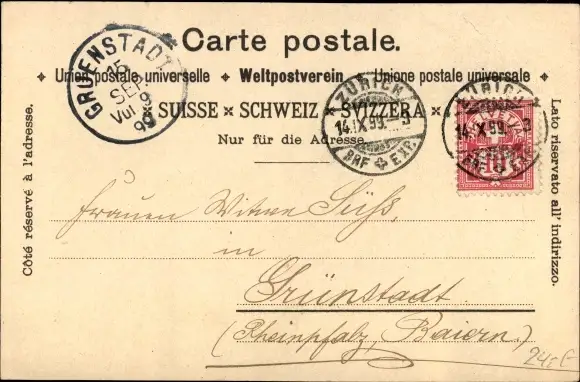 Carte postale.
✦ Union postale universelle ✦ Weltpostverein ✦ Unione postale universale ✦
SUISSE × SCHWEIZ × SVIZZERA ×
Nur für die Adresse.
GRUENSTADT
15
SEP
99
ZÜRICH
14.IX.99.
BRF EXP.
ZÜRICH
14.IX.99.
10
Côté réservé à l'adresse.
Lato riservato all' indirizzo.
Frauen Witwe Süss,
in
Grünstadt
(Rheinpfalz, Baiern.)